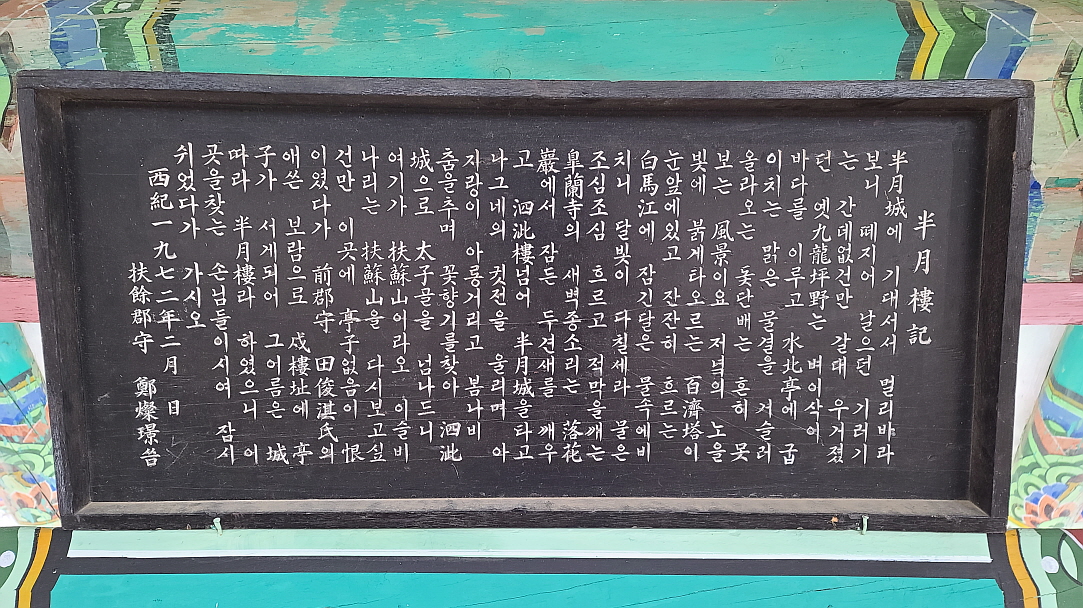 半月樓記
半月城에 기대서서 멀리바라
보니 떼지어 날으던 기러기
는 간데없건만 갈대 우거졌
던 옛九龍坪野는 벼이삭이
바다를 이루고 水北亭에 굽
이치는 맑은 물결을 겨슬러
올라오는 돛단배는 흔히 못
보는 風景이요 저녁의 노을
빛에 붉게타오르는 百濟塔이
눈앞에있고 잔잔히 흐르는
白馬江에 잠긴달은 물속에비
치니 달빛이 다칠세라 물은
조심조심 흐르고 적막을깨는
皐蘭寺의 새벽종소리는 落花
巖에서 잠든 두견새를 깨우
고 泗沘樓넘어 半月城을타고
나그네의 귓전을 울리며 아
자랑이 아롱거리고 봄나비
춤을추며 꽃향기를찾아 泗沘
城으로 太子골을 넘나드니
여기가 扶蘇山이라오 이슬비
나리는 扶蘇山을 다시보고싶
건만 이곳에 亭子없음이 恨
이였다가 前郡守 田俊淇氏의
애쓴 보람으로 戍樓址에 亭
子가 서게되어 그이름은 城
따라 半月樓라 하였으니 이
곳을찾는 손님들이시여 잠시
쉬었다가 가시오
西紀一九七二年二月 日
扶餘郡守 鄭燦璟씀